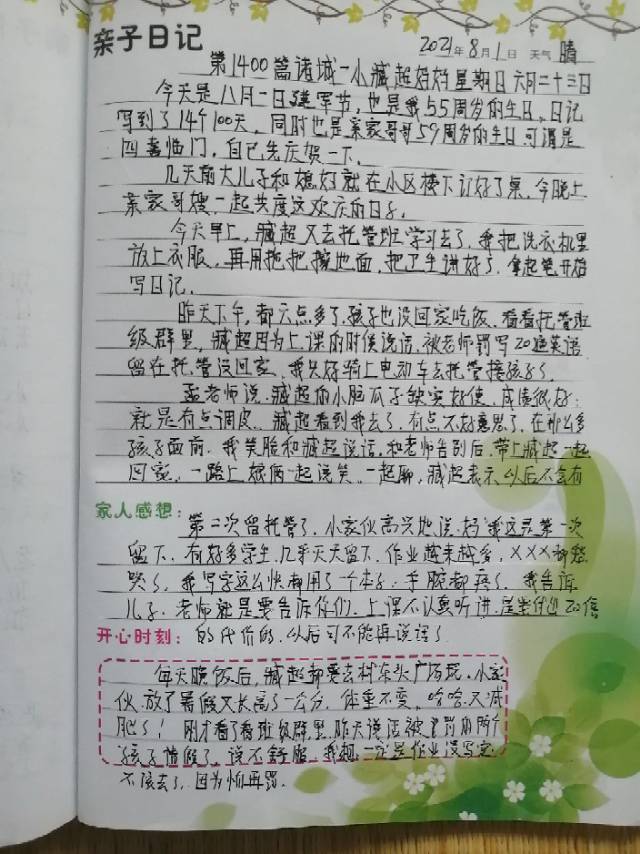 亲子日记
2021年8月1日 天气 晴
第1400篇诸城一小臧超妈妈星期日六月二十三日
今天是八月一日建军节,也是我55周岁的生日,日记
写到了14个100天,同时也是亲家哥哥59周岁的生日,可谓是
四喜临门,自己先庆贺一下。
几天前大儿子和媳妇就在小区楼下订好了桌,今晚上
亲家哥嫂一起共度这欢庆的日子。
今天早上,臧超又去托管班学习去了,我把洗衣机里
放上衣服,再用拖把擦地面,把卫生讲好了,拿起笔开始
写日记。
昨天下午,都六点多了,孩子也没回家吃饭,看看托管班
级群里,臧超因为上课的时候说话,被老师罚写20遍英语
留在托管没回家,我只好骑上电动车去托管接孩子。
孟老师说,臧超的小脑瓜子缺实好使,成绩很好;
就是有点调皮,臧超看到我去了,有点不好意思了,在那么多
孩子面前,我笑脸和臧超说话,和老师告别后,带上臧超一起
回家,一路上娘俩一起说笑,一起聊,臧超表示,以后不会有
家人感想:
第二次留托管了,小家伙高兴地说,妈,我这是第一次
留下,有好多学生,几乎天天留下,作业越来越多,XXX都愁
哭了,我写字这么快都用了一个本子,手腕都疼了,我告诉
儿子,老师就是要告诉你们,上课不认真听讲,是要付出20倍
开心时刻:
的代价的,以后可不能再说话了
每天晚饭后,臧超都要去村东头广场玩,小家
伙,放了暑假又长高了一公分,体重不变,哈哈,又减
肥了!刚才看了看班级群里,昨天说话被罚的两个
孩子请假了,说不舒服,我想一定是作业没写完,
不愿去了,因为怕再罚.